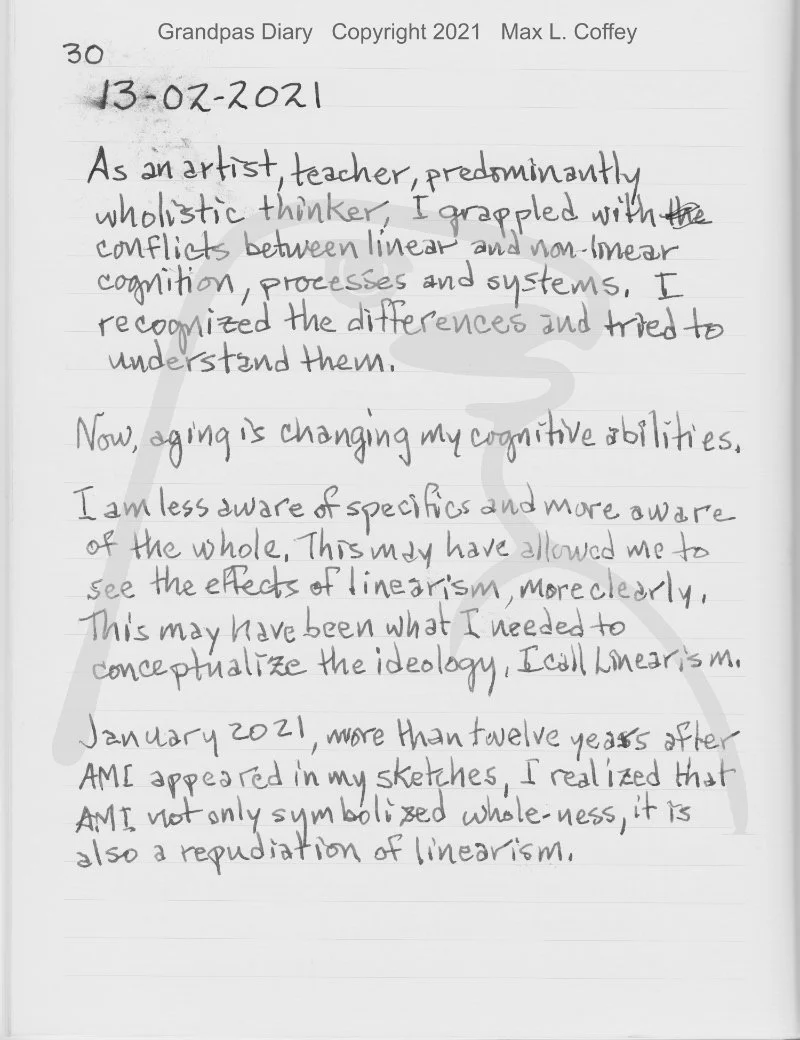 Grandpas Diary Copyright 2021 Max L. Coffey
30
13-02-2021
As an artist, teacher, predominantly
wholistic thinker, I grappled with the
conflicts between linear and non-linear
cognition, processes and systems. I
recognized the differences and tried to
understand them.
Now, aging is changing my cognitive abilities.
I am less aware of specifics and more aware
of the whole. This may have allowed me to
see the effects of linearism, more clearly.
This may have been what I needed to
conceptualize the ideology, I call Linearism.
January 2021, more than twelve years after
AMI appeared in my sketches, I realized that
AMI not only symbolized whole-ness, it is
also a repudiation of linearism.